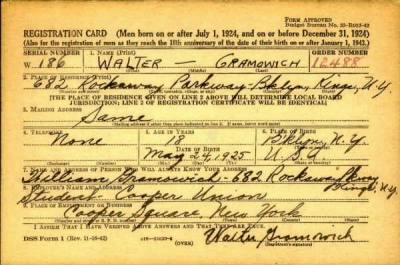 Form Approved
Budget Bureau No. 33-R083-42
REGISTRATION CARD (Men born on or after July 1, 1924, and on or before December 31, 1924)
(Also for the registration of men as they reach the 18th anniversary of the date of their birth on or after January 1, 1943.)
SERIAL NUMBER 1. NAME (Print) ORDER NUMBER
W. 186 WALTER — GRAMOWICH 12488
(First) (Middle) (Last)
2. PLACE OF RESIDENCE (Print)
682 Rockaway Parkway Bklyn, Kings, N.Y.
[THE PLACE OF RESIDENCE GIVEN ON LINE 2 ABOVE WILL DETERMINE LOCAL BOARD
JURISDICTION; LINE 2 OF REGISTRATION CERTIFICATE WILL BE IDENTICAL]
3. MAILING ADDRESS
Same
4. TELEPHONE 5. AGE IN YEARS 6. PLACE OF BIRTH
None 18 Bklyn, N.Y.
DATE OF BIRTH
May 24, 1925 USA
7. NAME AND ADDRESS OF PERSON WHO WILL ALWAYS KNOW YOUR ADDRESS
William Gramowich - 682 Rockaway Pkwy
8. EMPLOYER'S NAME AND ADDRESS
Student Cooper Union
9. PLACE OF EMPLOYMENT OR BUSINESS
Cooper Square, New York
I AFFIRM THAT I HAVE VERIFIED ABOVE ANSWERS AND THAT THEY ARE TRUE.
DSS Form 1 (Rev. 11-16-42) (OVER) Walter Gramowich
(Registrant's signature)